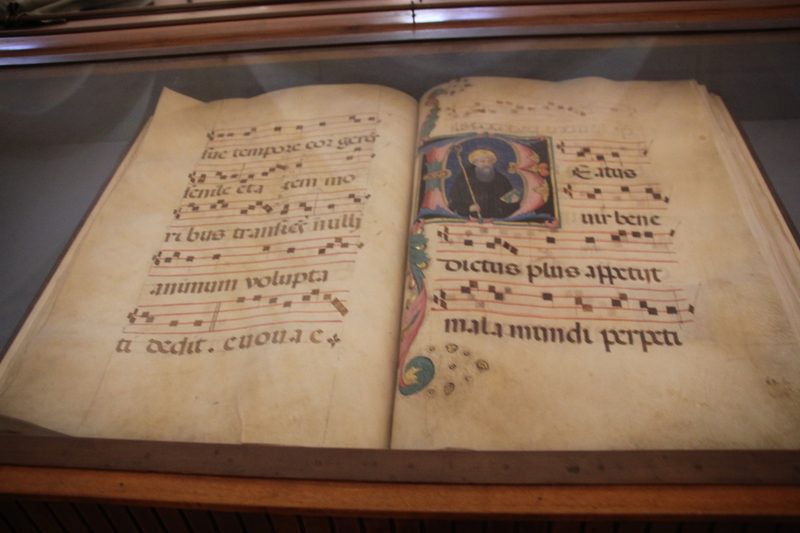 sue tempore cor gerēs
senile eta tem mo
ribus transiēs nulli
animum volupta
ti dedit. euouae
Eatus
uir bene
dictus plus appetiit
mala mundi perpeti